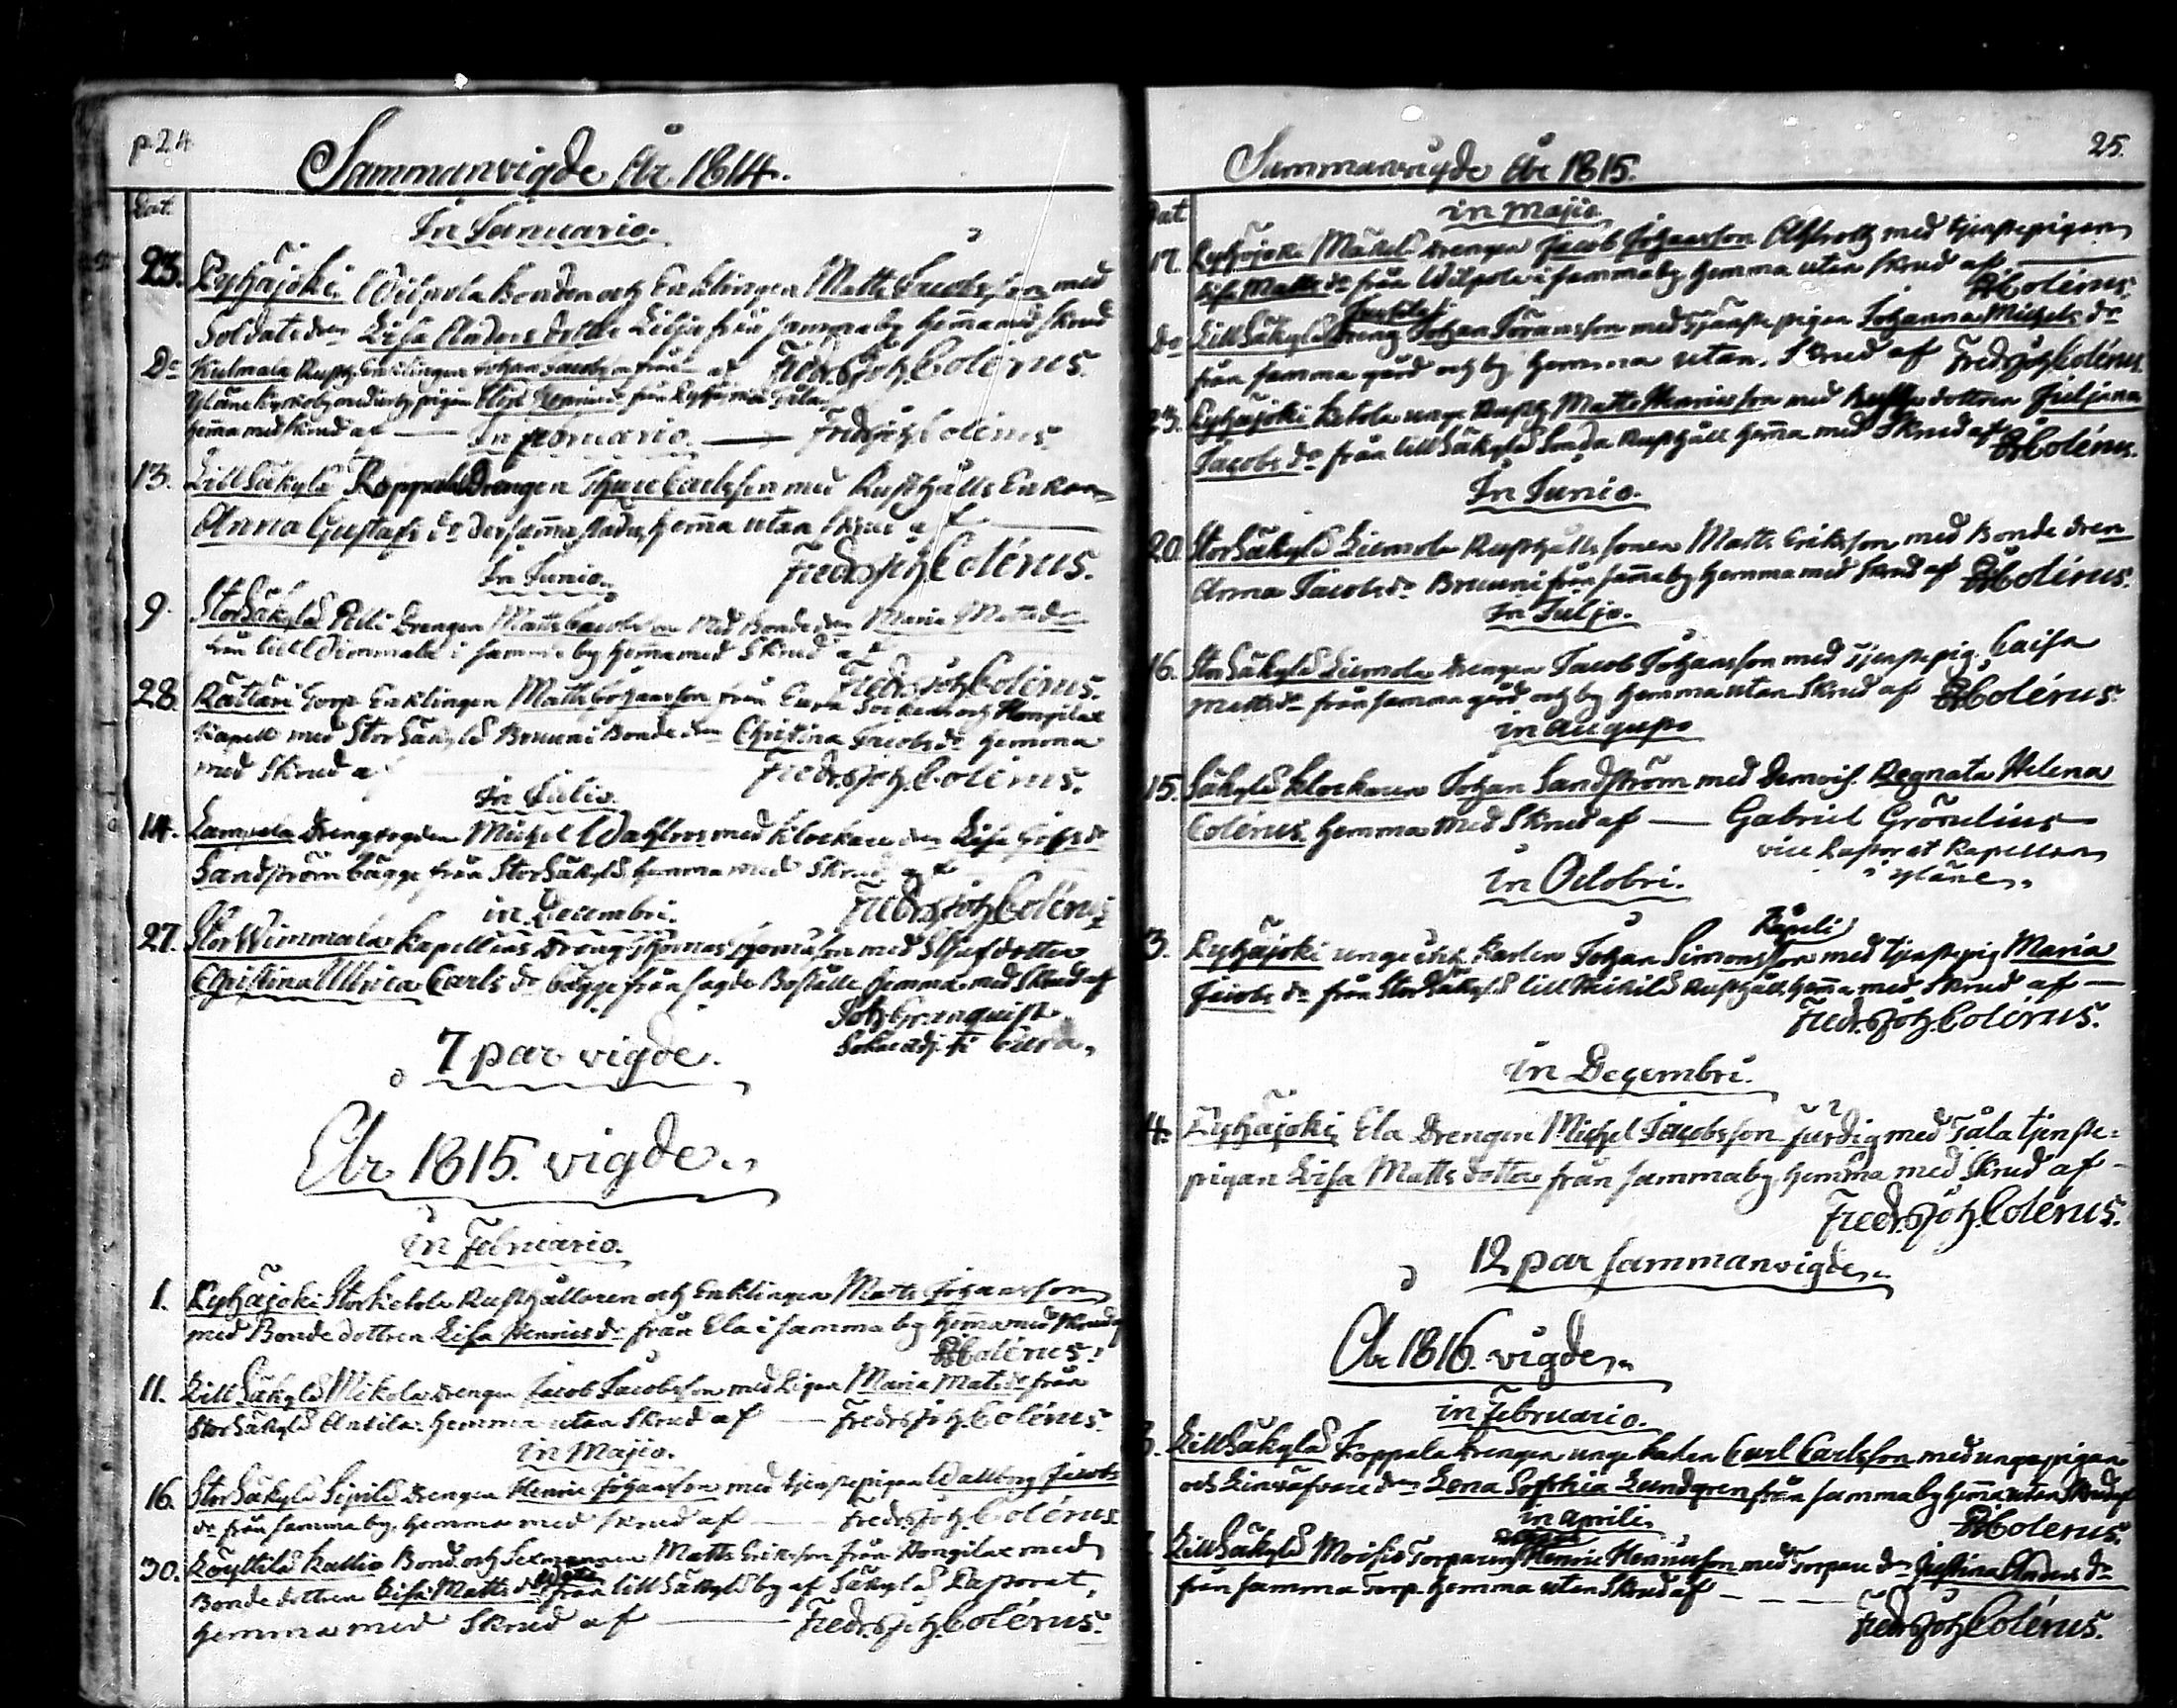 p. 24
Sammanvigde År 1814.
Dat.
In Januario.
23. Pyhäjoki Wilpola Bonden och Enklingen Matts Jacobsson med
Soldatedr Lisa Anders dotter Lilja från samma by hemma med skrud
Do Kulmala Rusth. Enklingen Johan Jacobsson från af Fredr. Joh. Colérus.
Yläne Kyrkoby med pigan från Pyhäjoki
hemma med skrud af — In Februario. — Fredr. Joh. Colérus.
13. LillSäkylä Koppala Drengen Thure Carlsson med Rusthålls Enkan
Anna Gustafs dr der samma stades, hemma utan skrud af —
In Junio. Fredr. Joh. Colérus.
9. StorSäkylä Pelli Drengen Matts Jacobsson med Bonde dr Maria Mattsdr
från lill Wimmala i samma by hemma med Skrud af
Fredr. Joh. Colérus.
28. Rätäri Torp Enklingen Matts Johansson från Eura Socken och Hongilax
Kapell med StorSäkylä Bruuni Bonde dr Christina Jacobs dr hemma
med Skrud af Fredr. Joh. Colérus.
In Julio.
14. Lampola Drengfogden Michel Wahlroos med Klockare dr Lisa Johs dr
Sandström bägge från StorSäkylä, hemma med Skrud af
in Decembri. Fredr. Joh. Colérus.
27. Stor Wimmala Kapellans Dreng Thomas Thomasson med Styfdotter
Christina Ullrica Carls dr bägge från sagde Boställe hemma med Skrud af
Joh. Granquist
Sockneadj. i Eura.
7 par vigde.
År 1815. vigde.
in Februario.
1. Pyhäjoki Storketola Rusthållaren och Enklingen Matts Johansson
med Bonde dottren Lisa Henricsdr från Ela i samma by hemma med skrud af
FJColérus.
11. LillSäkylä Mikola drengen Jacob Jacobsson med Pigan Maria Matsdr från
StorSäkylä Antila. hemma utan Skrud af — Fredr. Joh. Colérus.
in Majio.
16. StorSäkylä Sipilä Drengen Henric Johansson med tjenstepigan Wallborg Jacobs
dr från samma by, hemma med skrud af — Fredr. Joh. Colérus.
30. Köyliilä Kallio Bond. och Matts Ericsson från Hongilax med
Bonde dottren Lisa Matts dr från lill Säkylä by af Säkylä Pastorat,
hemma med Skrud af — Fredr. Joh. Colérus.
25.
Sammanvigde År 1815.
Dat
in Majio
17. Pyhäjoki Mäkelä drengen Jacob Johansson med tjenstepigan
Lisa Matts dr från Wilpola i samma by hemma utan skrud af —
FJColérus.
Do LillSäkylä Dreng Johan Göransson med Tjänste pigan Johanna Michels dr
från samma gård och by hemma utan Skrud af Fredr. Joh. Colérus.
23. Pyhäjoki Ketola unge Rusth. Matts Henricsson med Rusth. dottren Juljana
Jacobs dr från lill Säkylä Rusthåll hemma med Skrud af FJColérus.
In Junio.
20. StorSäkylä Liemola Rusthålls sonen Matts Ericksson med Bonde dren
Anna Jacobsdr Bruuni från samma by hemma med skrud af FJColérus.
In Juljo.
16. StorSäkylä Liemola drengen Jacob Johansson med tjenstepig. Caisa
Mattsdr från samma gård och by hemma utan Skrud af FJColérus.
in Augusto
15. Säkylä Klockaren Johan Sandström med Demois. Regnata Helena
Colérus hemma med Skrud af — Gabriel Grönelius
vice Pastor et Kapellan
i Yläne.
in Octobri.
3. Pyhäjoki unge Karlen Johan Simonsson med tjenstepig Maria
Jacobs dr från Stor Säkylä lill Rusthåll, hemma med Skrud af —
Fredr. Joh. Colérus.
in Decembri.
4. Pyhäjoki Ela Drengen Michel Jacobsson med tjenste-
pigan Lisa Matts dotter från samma by, hemma med Skrud af -
Fredr. Joh. Colérus.
12 par sammanvigde.
År 1816. vigde.
in Februario.
LillSäkylä Koppala drengen unge karlen Carl Carlsson med unga pigan
och Linväfvare dr Lena Sophia Lundgren från samma by hemma utan Skrud af
in Aprili. FJColerus.
LillSäkylä Moisio Torparen Henric Henricsson med Torpare dr Justina Anders dr
från samma Torp. hemma utan Skrud af —
Fredr. Joh. Colérus.